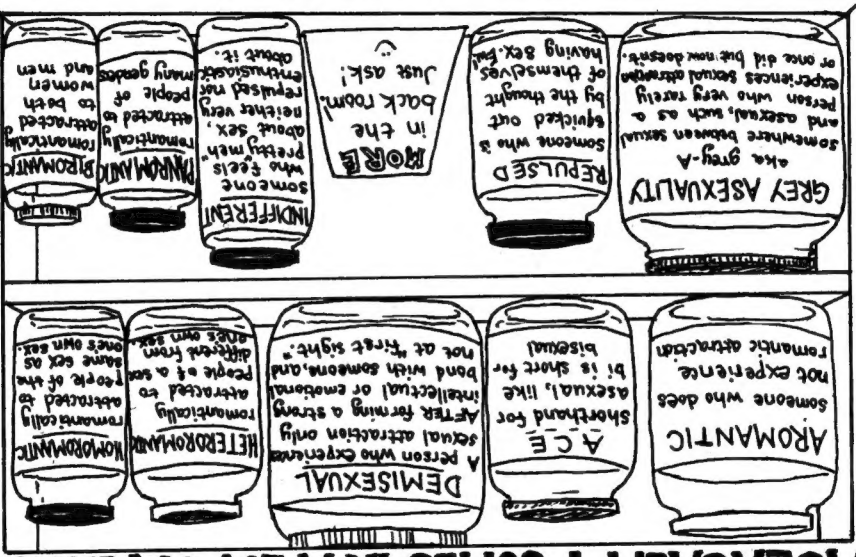 AROMANTIC
someone who does
not experience
romantic attraction
ACE
shorthand for
asexual, like,
bi is short for
bisexual
DEMISEXUAL
A person who experience
sexual attraction only
AFTER forming a strong
intellectual or emotional
bond with someone, and,
not at "first sight."
HETEROROMANTIC
romantically
attracted to
people of a sex
different from
one's own sex.
HOMOROMANTIC
romantically
attracted to
people of the
same sex as
one's own sex.
GREY ASEXUALITY
aka grey-A
somewhere between sexual
and asexual, such as a
person who very rarely
experiences sexual attraction
or once did but now doesn't.
REPULSED
someone who is
squicked out
by the thought
of themselves
having sex. Ew!
MORE
in the
back room!
Just ask!
INDIFFERENT
someone
who feels
"pretty meh"
about sex,
neither very
repulsed nor
enthusiastic
about it.
PANROMANTIC
romantically
attracted to
people of
many genders
BIROMANTIC
romantically
attracted
to both
women
and men